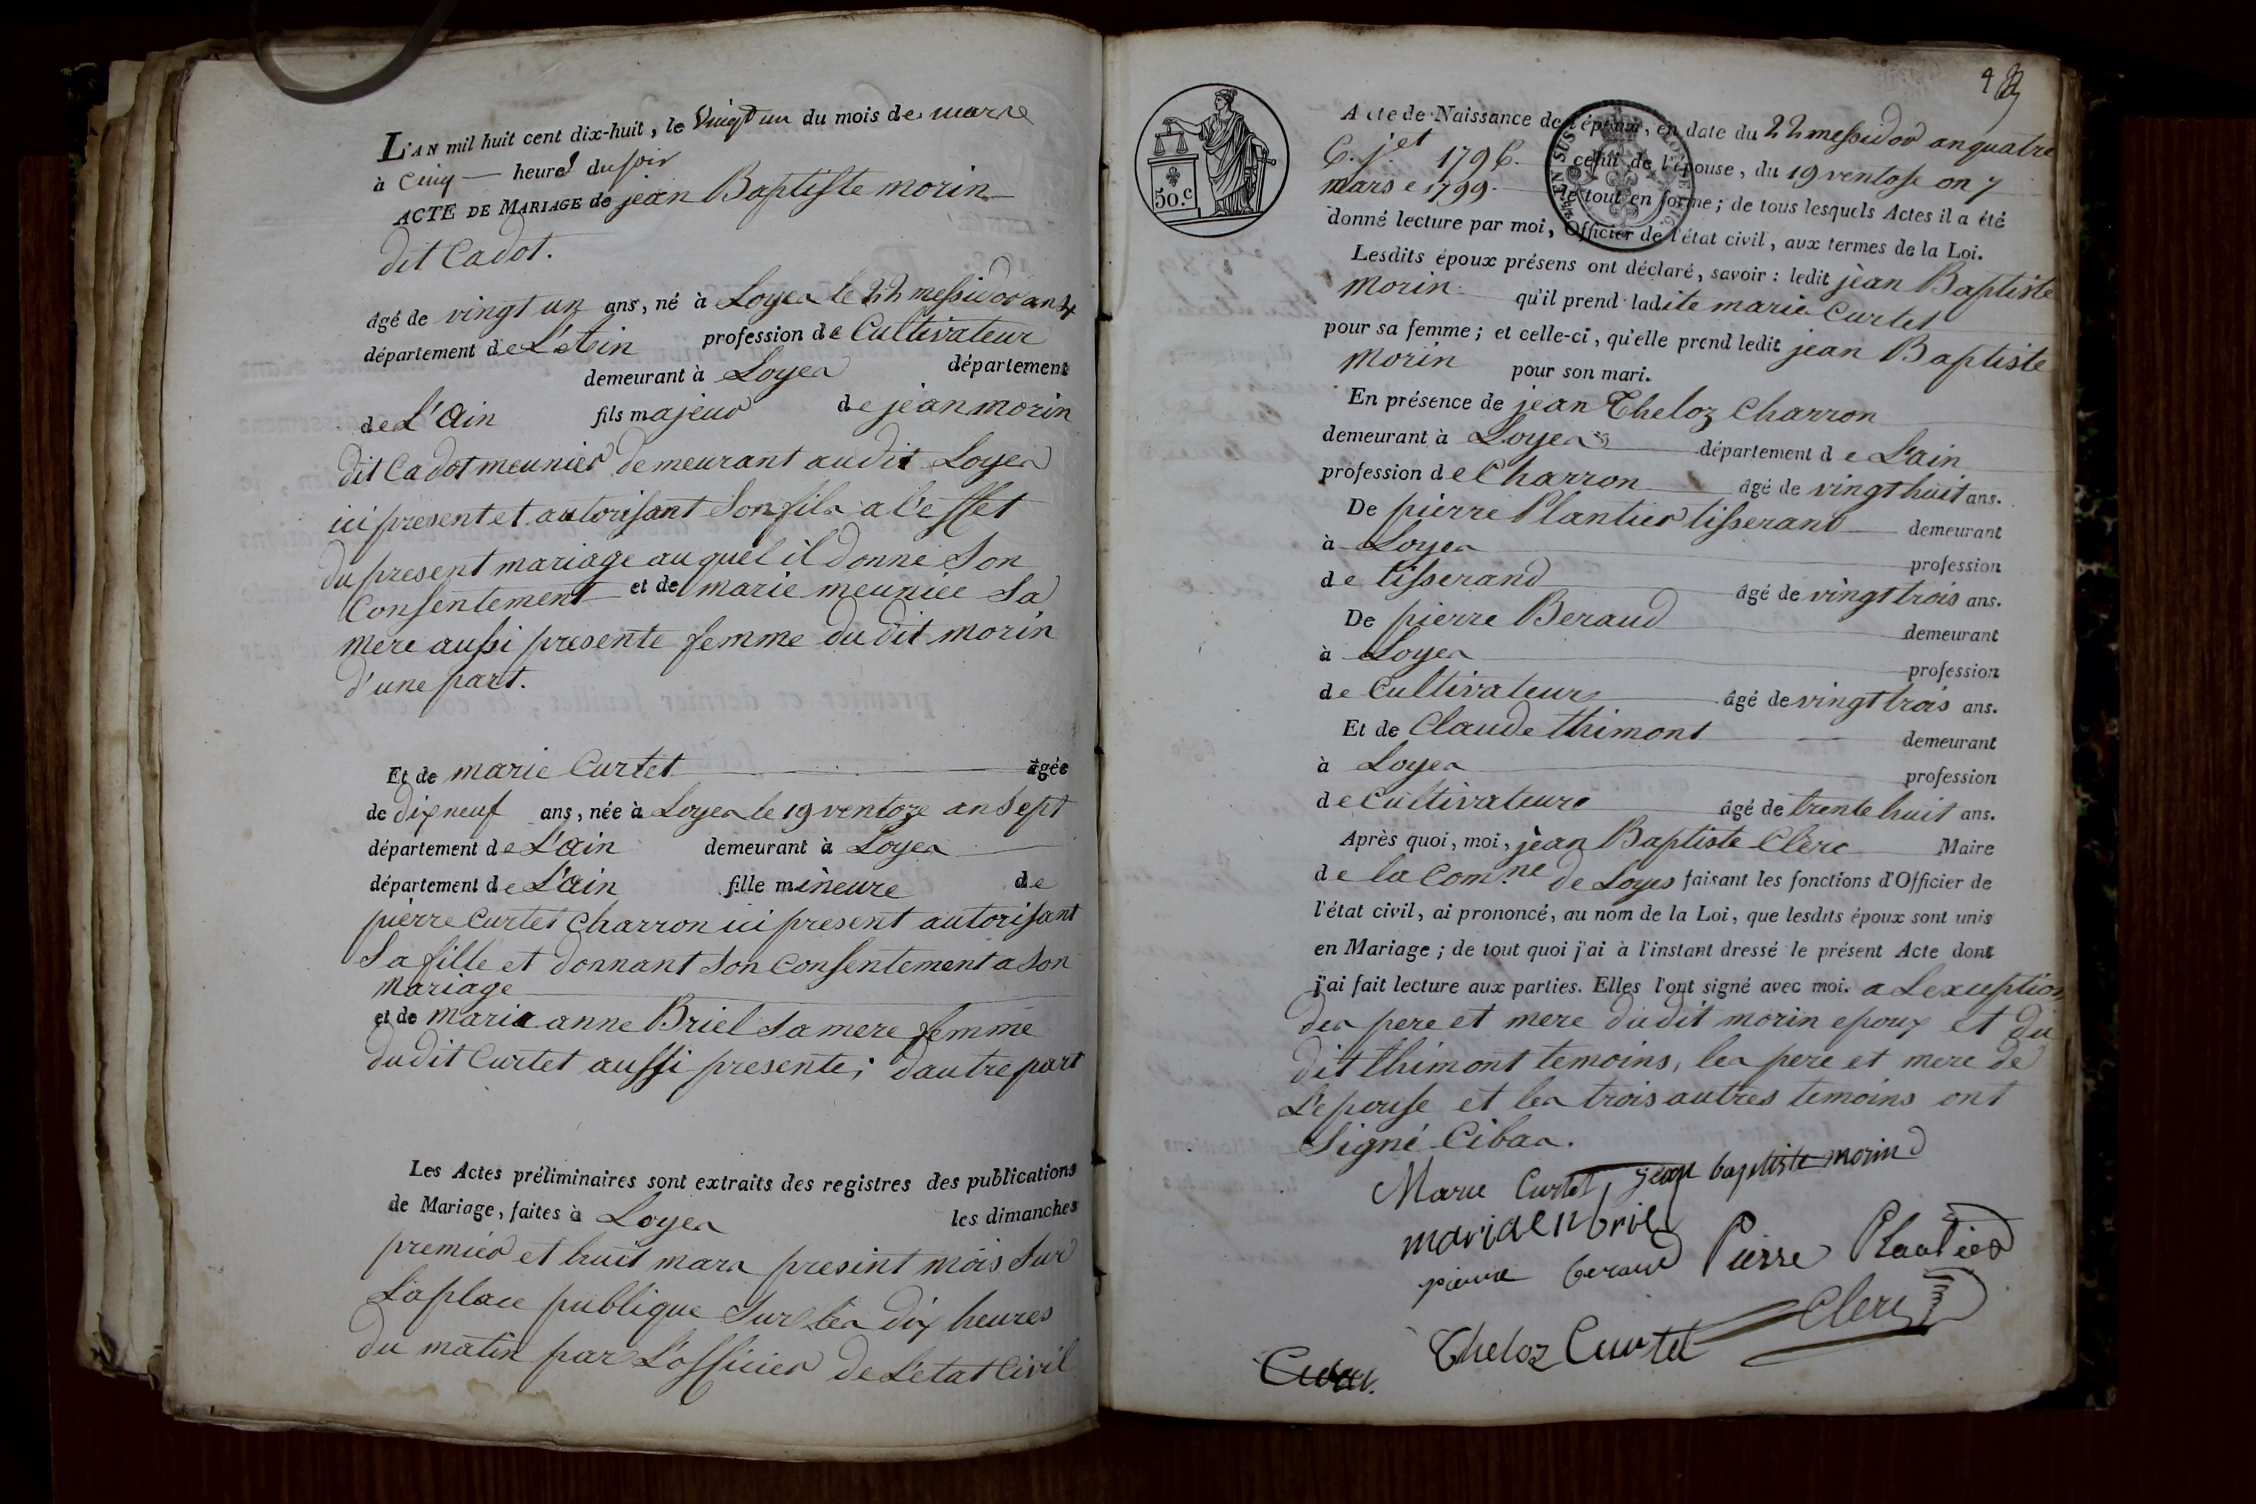 L'AN mil huit cent dix-huit, le Vingt un du mois de marse
à cinq heures du soir
ACTE DE MARIAGE de jean Baptiste morin
dit Cadot.
âgé de vingt un ans, né à Loyes le 22 messidor an 4
département de L'Ain profession de Cultivateur
demeurant à Loyes département
de L'Ain fils majeur de jean morin
dit Cadot meunier demeurant audit Loyes
ici present et autorisant Son fils a l'effet
du present mariage auquel il donne Son
Consentement et de marie meunier Sa
mere aussi presente femme du dit morin
d'une part.
Et de marie Curtet âgée
de dix neuf ans, née à Loyes le 19 ventoze an Sept
département de L'Ain demeurant à Loyes
département de L'Ain fille mineure de
pierre Curtet Charron ici present autorisant
Sa fille et donnant Son Consentement a Son
mariage
et de maria anne Briel Sa mere femme
dudit Curtet aussi presente; dautre part
Les Actes préliminaires sont extraits des registres des publications
de Mariage, faites à Loyes les dimanches
premier et huit mars present mois Sur
La place publique Sur les dix heures
du matin par L'officier de L'etat Civil
50.c
4
Acte de Naissance de l'époux, en date du 22 messidor an quatre
6. jet 1796. celui de l'épouse, du 19 ventose an 7
mars 1799. le tout en forme; de tous lesquels Actes il a été
donné lecture par moi, Officier de l'état civil, aux termes de la Loi.
Lesdits époux présens ont déclaré, savoir: ledit jean Baptiste
Morin qu'il prend ladite marie Curtet
pour sa femme; et celle-ci, qu'elle prend ledit jean Baptiste
Morin pour son mari.
En présence de jean Theloz Charron
demeurant à Loyes département de L'ain
profession de Charron âgé de vingt huit ans.
De pierre Plantier tisserand demeurant
à Loyes profession
de tisserand âgé de vingt trois ans.
De pierre Beraud demeurant
à Loyes profession
de Cultivateur âgé de vingt trois ans.
Et de Claude thimont demeurant
à Loyes profession
de Cultivateur âgé de trente huit ans.
Après quoi, moi, jean Baptiste Clerc Maire
de la Com.ne de Loyes faisant les fonctions d'Officier de
l'état civil, ai prononcé, au nom de la Loi, que lesdits époux sont unis
en Mariage; de tout quoi j'ai à l'instant dressé le présent Acte dont
j'ai fait lecture aux parties. Elles l'ont signé avec moi. a Lexception
des pere et mere dudit morin epoux et du
dit thimont temoins, les pere et mere de
L'epouse et les trois autres temoins ont
Signé Cibas.
Marie Curtet jean baptiste morin
mariaen briel
pierre beraud Pierre Plantier
Clerc
Theloz Curtet